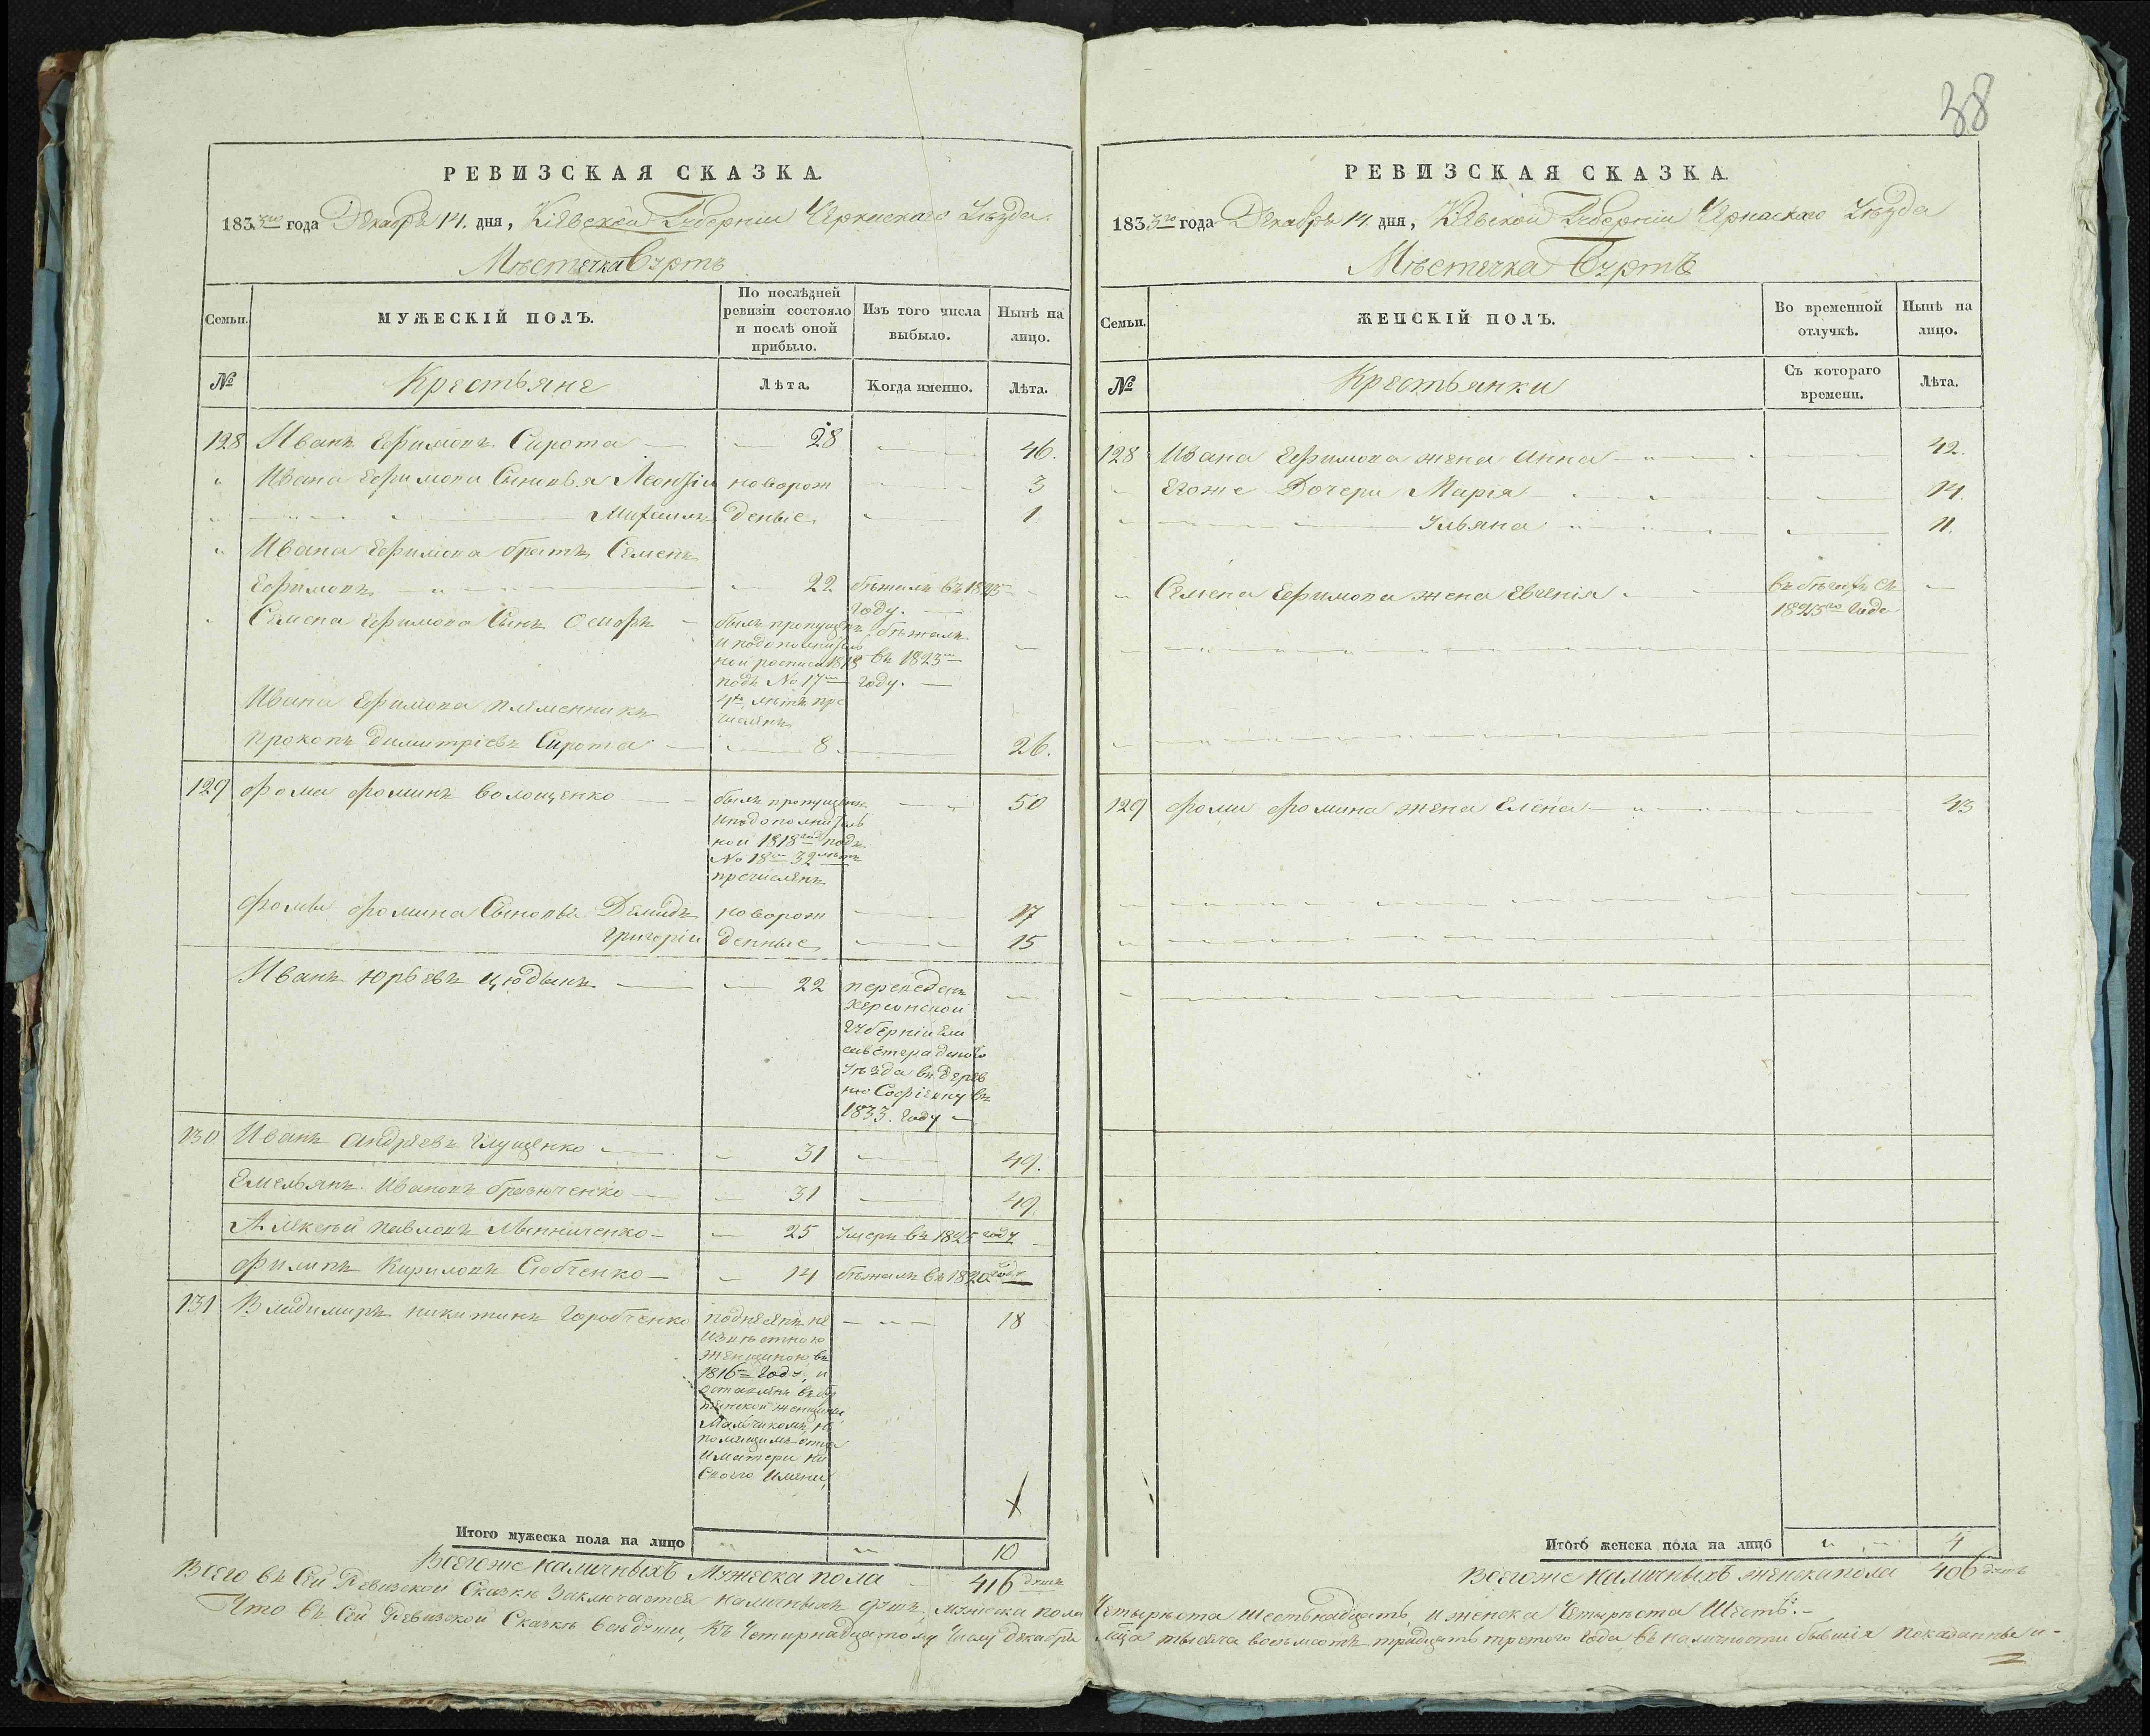 РЕВИЗСКАЯ СКАЗКА.
1833го года Декабря 14. дня, Кіевской Губерніи Черкаскаго Уѣзда
Мѣстечка Буртъ
Семьи.
МУЖЕСКІЙ ПОЛЪ.
По послѣдней ревизіи состояло и послѣ оной прибыло.
Изъ того числа выбыло.
Нынѣ на лицо.
№
Крестьяне
Лѣта.
Когда именно.
Лѣта.
128 Иванъ Ефимовъ Сирота 28 46.
Ивана Ефимова Сыновья Леонтій новорож 3
Михаилъ денные 1
Ивана Ефимова братъ Семенъ
Ефимовъ 22 бѣжалъ въ 1825
году.
Семена Ефимова Сынъ Осифъ
былъ пропущенъ
и подополнитель
ной росписи 1818
подъ № 17
4 лѣтъ при
численъ
бѣжалъ
въ 1823
году.
Ивана Ефимова племенникъ
Прокопъ Димитріевъ Сирота 8 26.
129 Фома Фоминъ Волощенко 50
былъ пропущенъ
иподополнитель
ной 1818 года подъ
№ 18 32 лѣтъ
пречисленъ
Фомы Фомина Сыновья Демидъ новорож 17
Григорій денные 15
Иванъ Юрьевъ Цюдынъ 22
переведенъ
Херсонской
Губерніи Ели
саветградского
Уѣзда въ дерев
ню Софіевку въ
1833. году
130 Иванъ Андреевъ Глущенко 31 49.
Емельянъ Ивановъ 31 49
Алексѣй Павловъ 25 Умеръ въ 1825 году
Филипъ Кириловъ 14 бѣжалъ въ 1820 году
131 Владимиръ Никитинъ Горобченко 18
поднесенъ не
извѣстною
женщиною въ
1816 году, и
оставленъ
женщины
Мальчикомъ, не
помнящимъ отца
и матери ни
своего имени,
Итого мужеска пола на лицо 10
Всегоже наличныхъ Мужеска пола 416 душъ
38
РЕВИЗСКАЯ СКАЗКА.
1833го года Декабря 14. дня, Кіевской Губерніи Черкаскаго Уѣзда
Мѣстечка Буртъ
Семьи.
ЖЕНСКІЙ ПОЛЪ.
Во временной отлучкѣ.
Нынѣ на лицо.
№
Крестьянки
Съ котораго времени.
Лѣта.
128 Ивана Ефимова жена Анна 42.
Егоже Дочери Марія 14.
Ульяна 11.
Семена Ефимова жена Евгенія въ бѣгахъ съ
1825го года
129 Фомы Фомина жена Елена 43
Итого женска пола на лицо 4
Всегоже наличныхъ женска пола 406 душъ
Всего въ Сей Ревизской Сказкѣ Заключается наличныхъ душъ, мужеска пола Четыреста шестьнадцать, и женска Четыреста Шесть.
Что въ Сей Ревизской Сказкѣ всѣ души, къ Четырнадцатому Числу Декабря М-ца тысяча восемьсотъ тридцать третого Года въ наличности бывшія показанны и